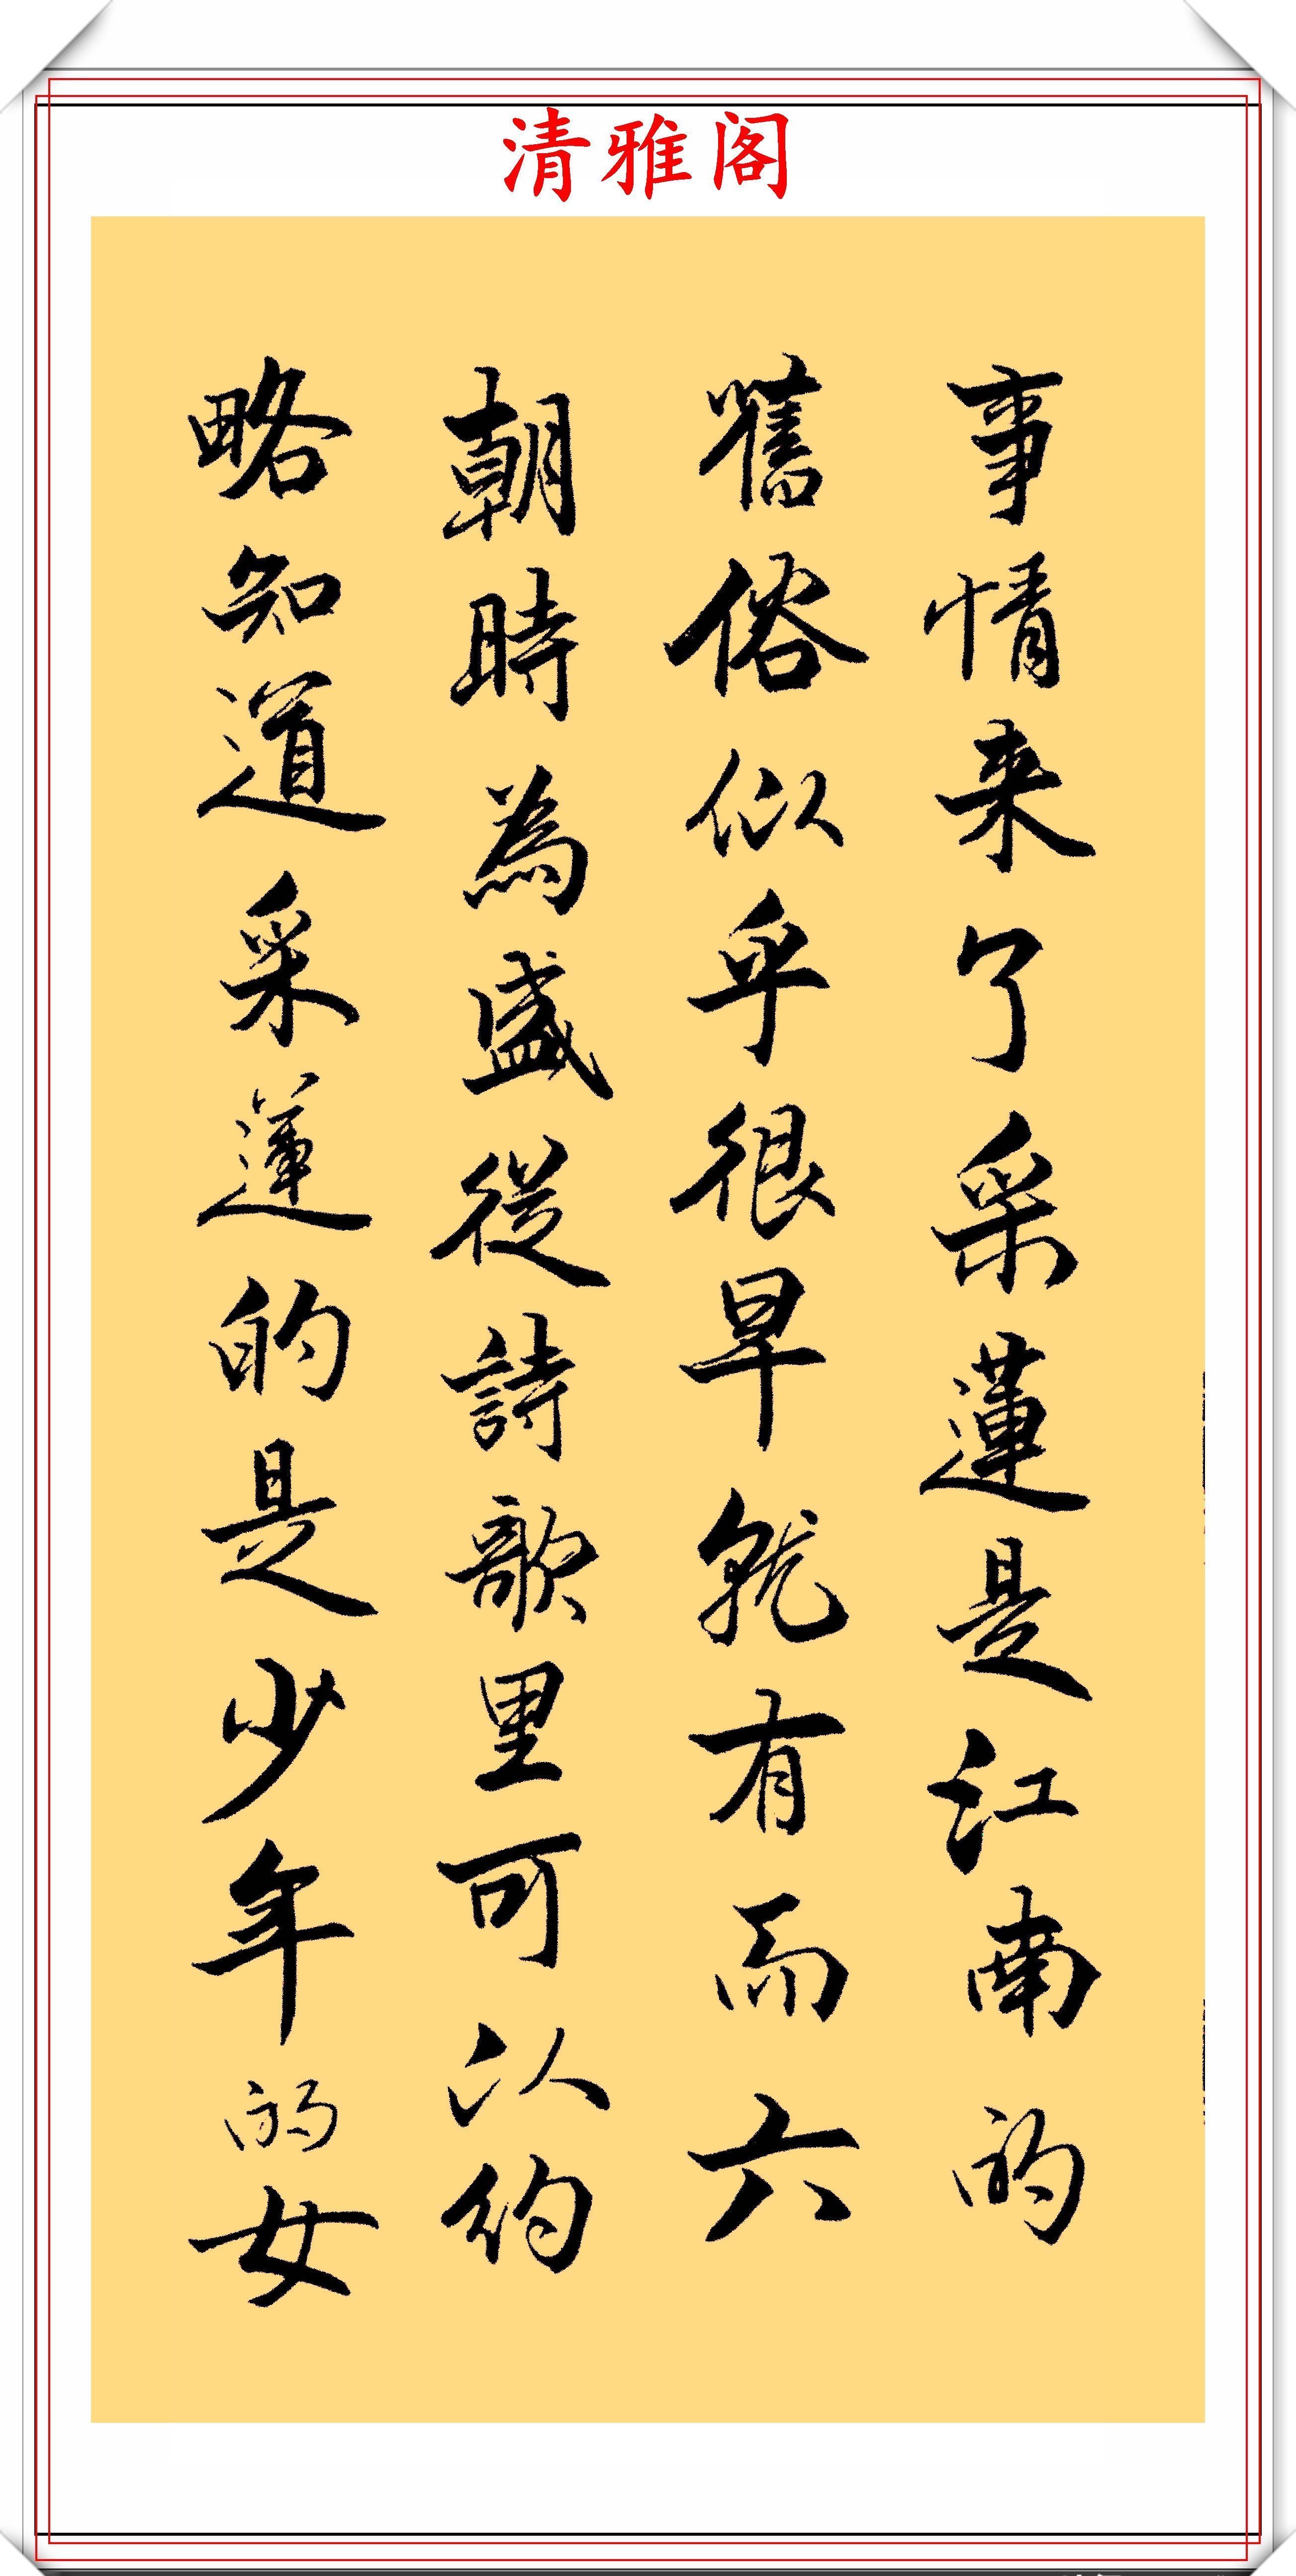 清雅阁
事情来了采蓮是江南的
舊俗似乎很早就有而六
朝時為盛從詩歌里可以約
略知道采蓮的是少年的女